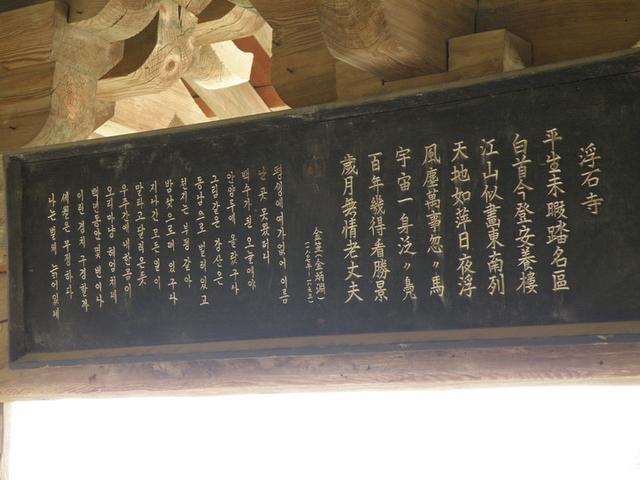 浮石寺
平生未暇踏名區
白首今登安養樓
江山似畵東南列
天地如萍日夜浮
風塵萬事忽〃馬
宇宙一身泛〃鳧
百年幾得看勝景
歲月無情老丈夫
金笠(金炳淵)
평생에 여가 없어 이름
난 곳 못 왔더니
백수가 된 오늘에야
안양루에 올랐구나
그림같은 강산은
동남으로 벌려 있고
천지는 부평 같아
밤낮으로 떠 있구나
지나간 모든 일이
말타고 달려온 듯
우주간에 내 한 몸이
오리마냥 헤엄치네
백년동안 몇 번이나
이런 경치 구경할까
세월은 무정하다
나는 벌써 늙어있네